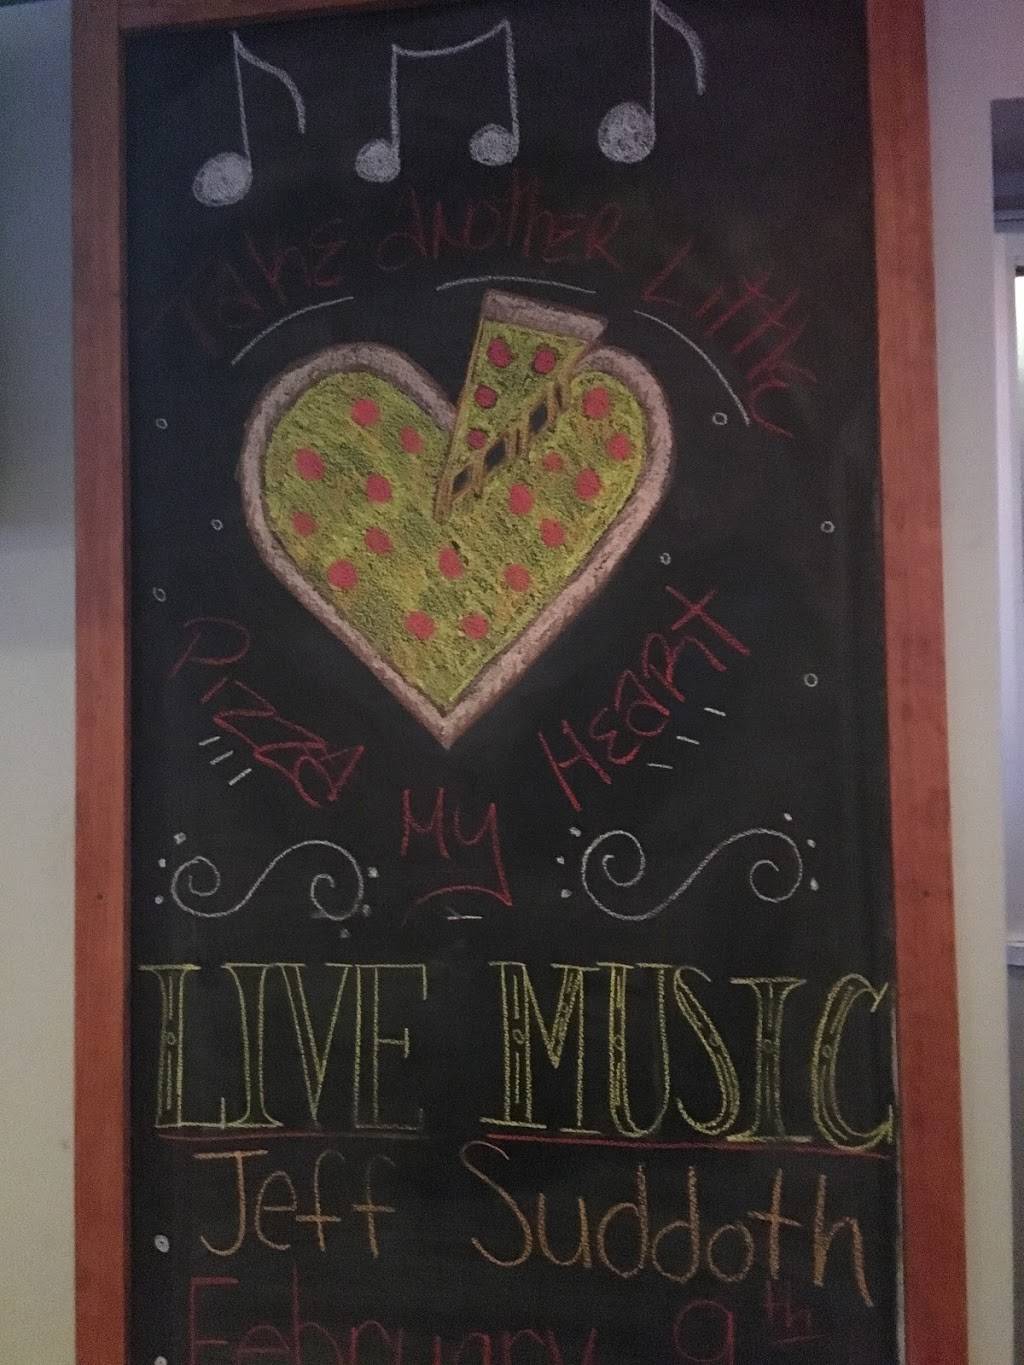 Take Another Little
Pizza My Heart
LIVE MUSIC
Jeff Suddoth
February 9th